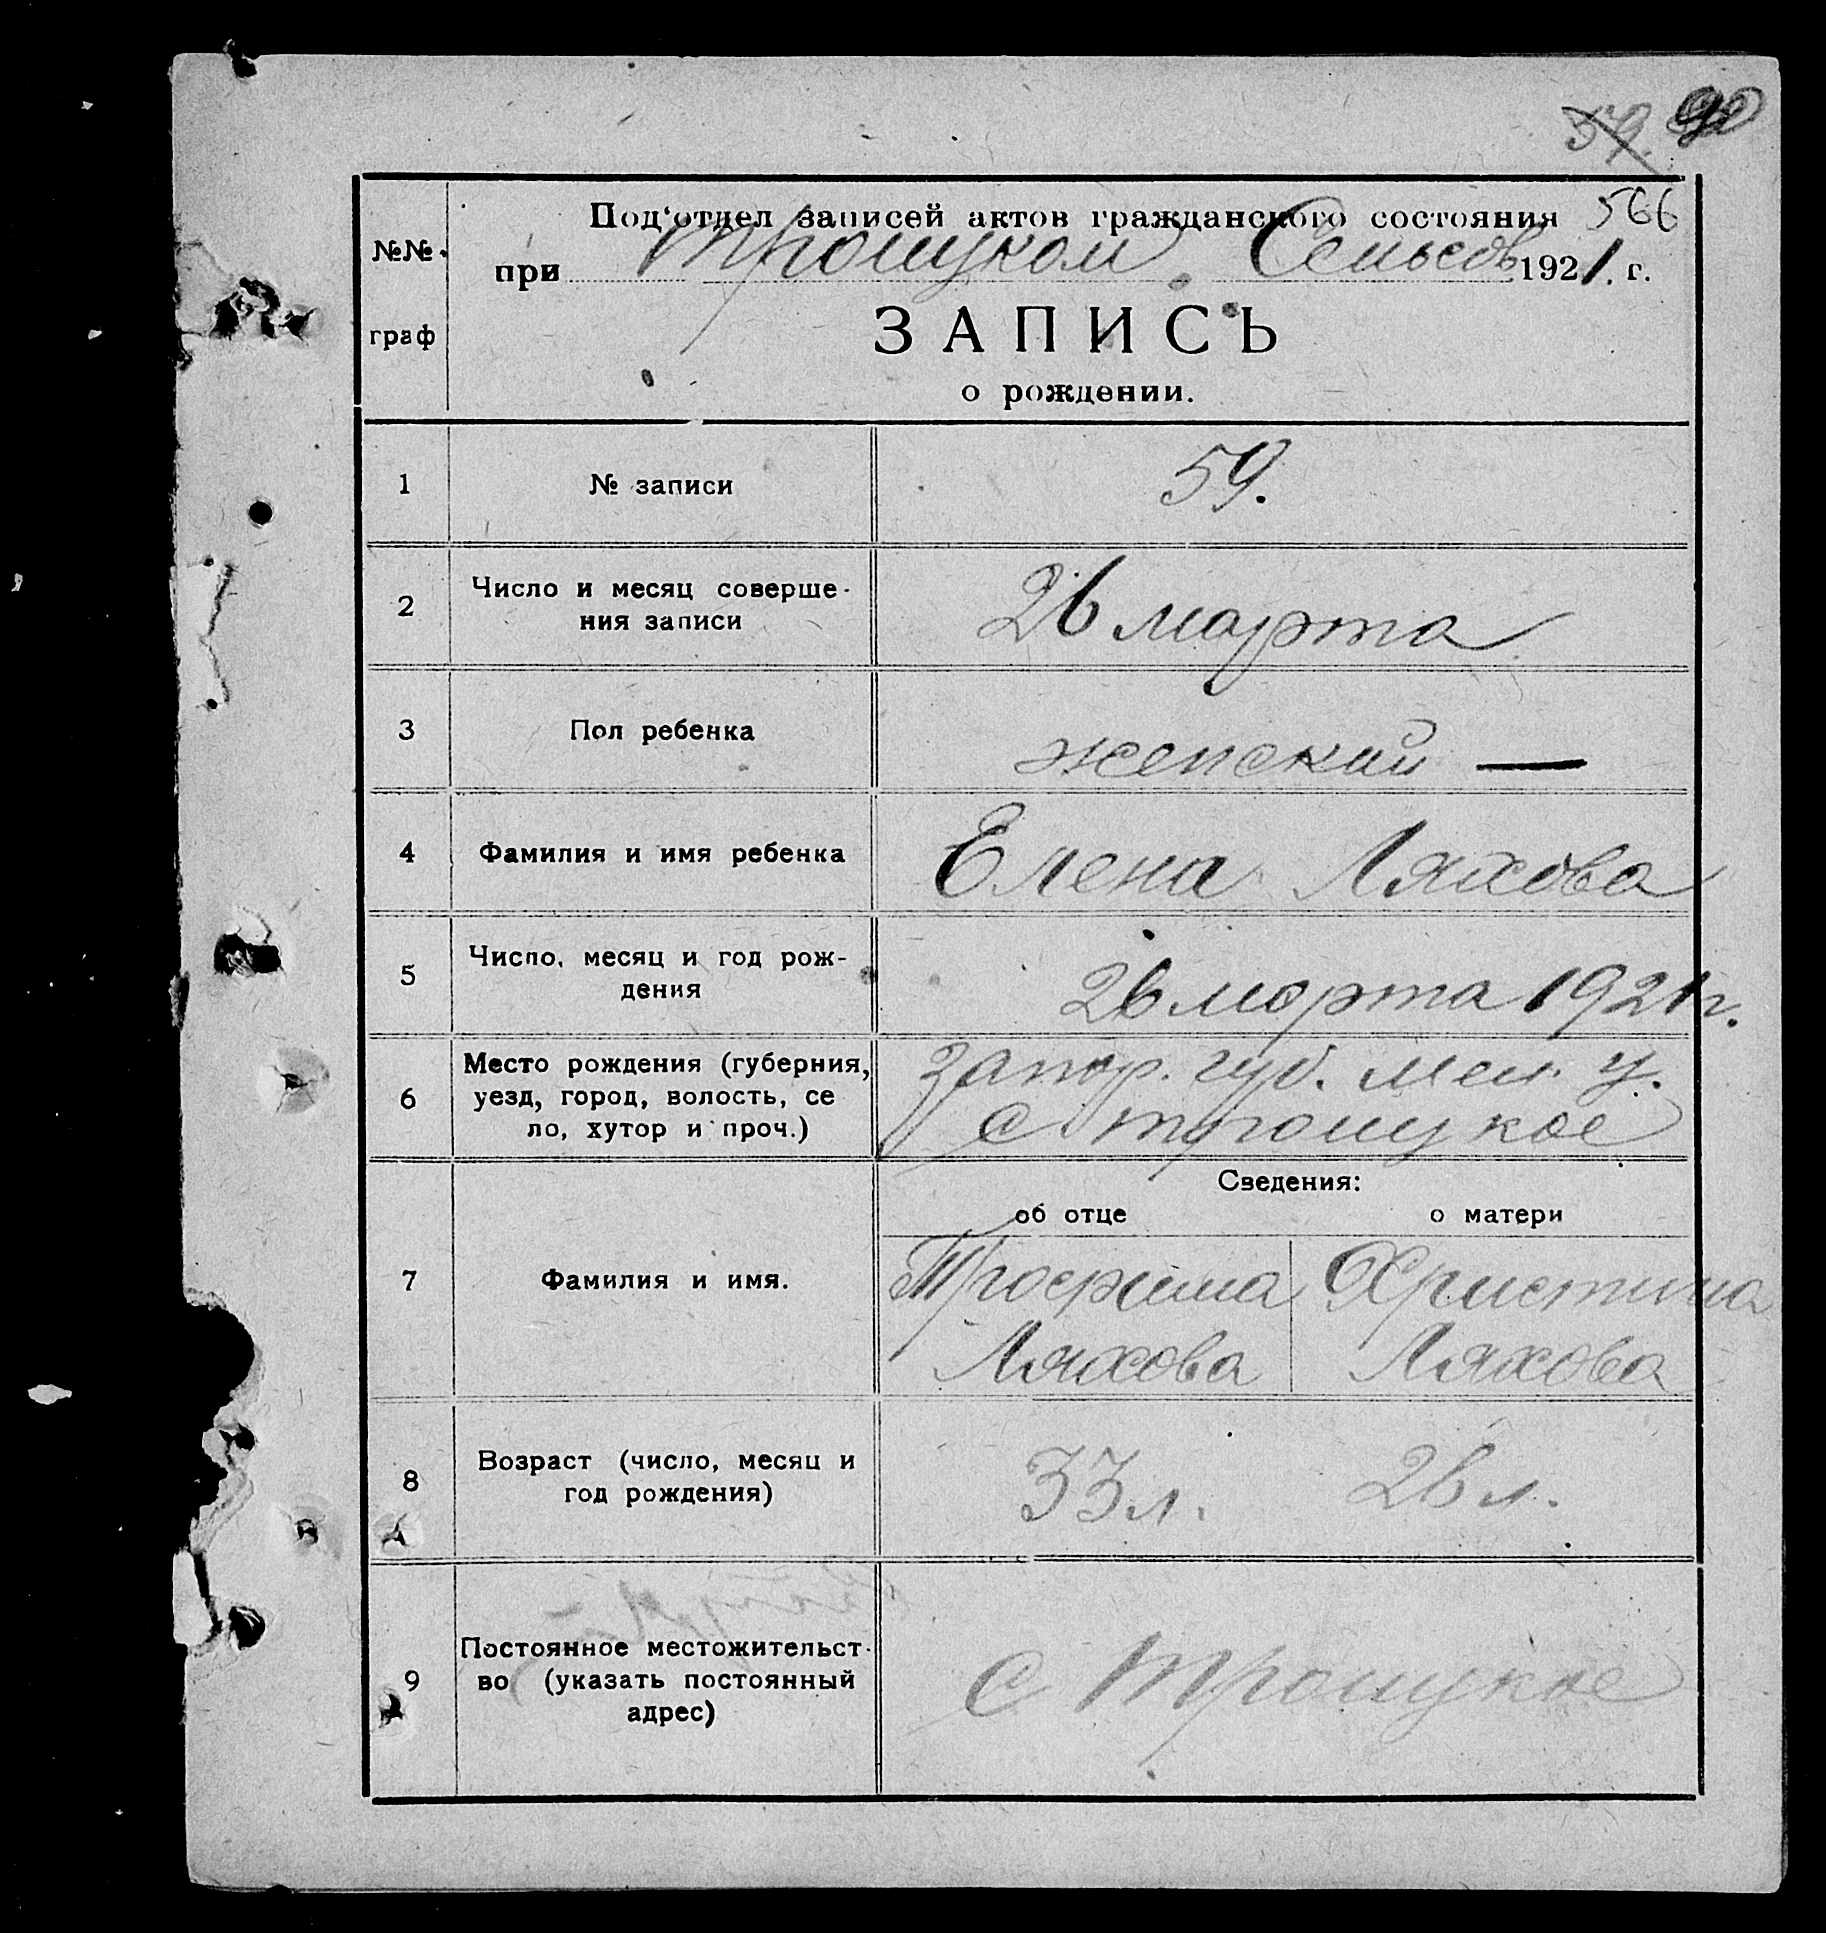 59. 90
566
Под'отдел записей актов гражданского состояния
№№
при Троицком Сельсов 1921. г.
граф
ЗАПИСЬ
о рождении.
1 № записи 59.
2 Число и месяц соверше-
ния записи 26 марта
3 Пол ребенка женский —
4 Фамилия и имя ребенка Елена Ляхова
5 Число, месяц и год рож-
дения 26 марта 1921 г.
6 Место рождения (губерния, Запор. губ. Мел. у.
уезд, город, волость, се
ло, хутор и проч.) с Троицкое
Сведения:
об отце о матери
7 Фамилия и имя. Трофима Христина
Ляхова Ляхова
8 Возраст (число, месяц и
год рождения) 33 л. 26 л.
9 Постоянное местожительст-
во (указать постоянный с Троицкое
адрес)